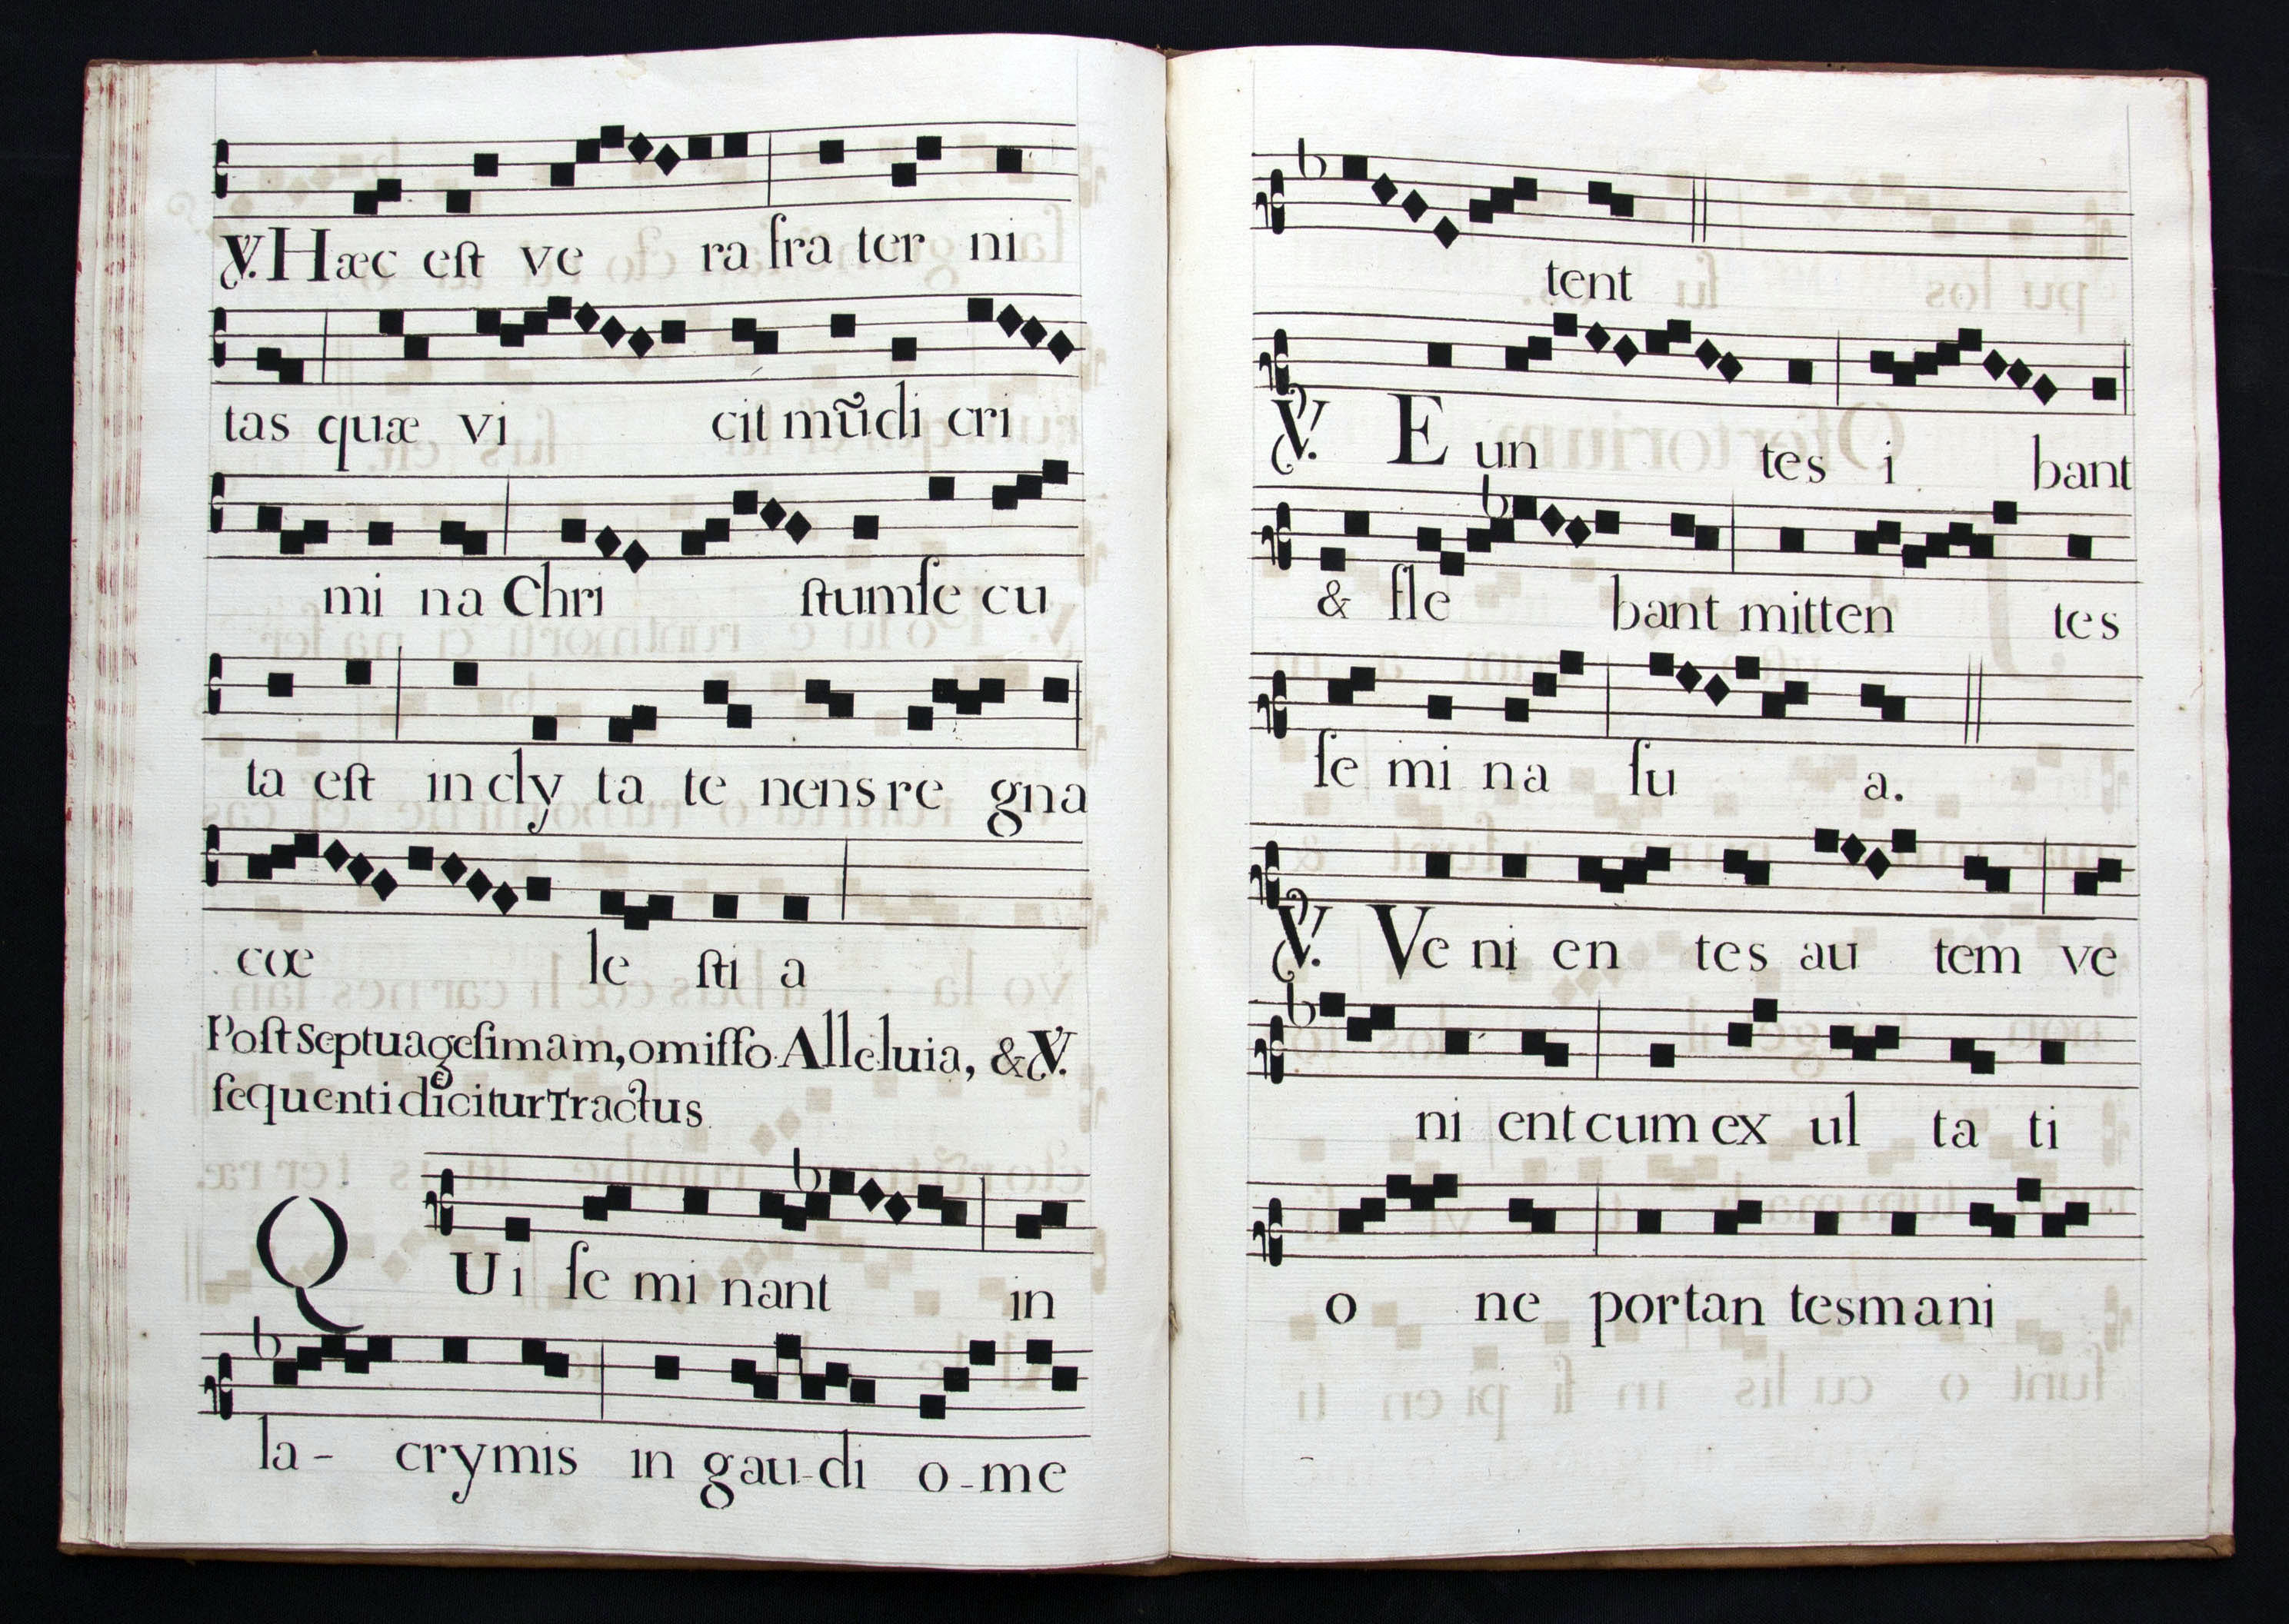 ℣. Hæc est ve ra fra ter ni
tas quæ vi cit mũdi cri
mi na Chri stum se cu
ta est in cly ta te nens re gna
cœ le sti a
Post Septuagesimam, omisso Alleluia, & ℣.
sequenti dicitur Tractus
QUi se mi nant in
la- crymis in gau-di o-me
tent
℣. E un tes i bant
& fle bant mitten tes
se mi na su a.
℣. Ve ni en tes au tem ve
ni ent cum ex ul ta ti
o ne portan tes mani